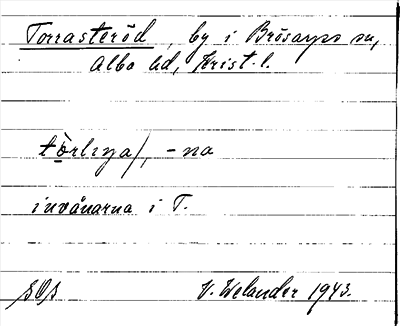 Torrasteröd, by i Brösarps sn,
Albo hd, Krist. l.
tòrliŋa/, -na
invånarna i T.
SOS V. Welander 1943.